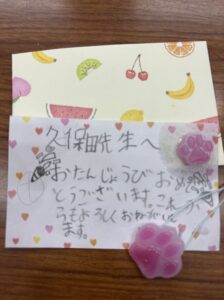 久保田先生へ
おたんじょうびおめで
とうございます。これか
らもよろしくおねがいし
ます。